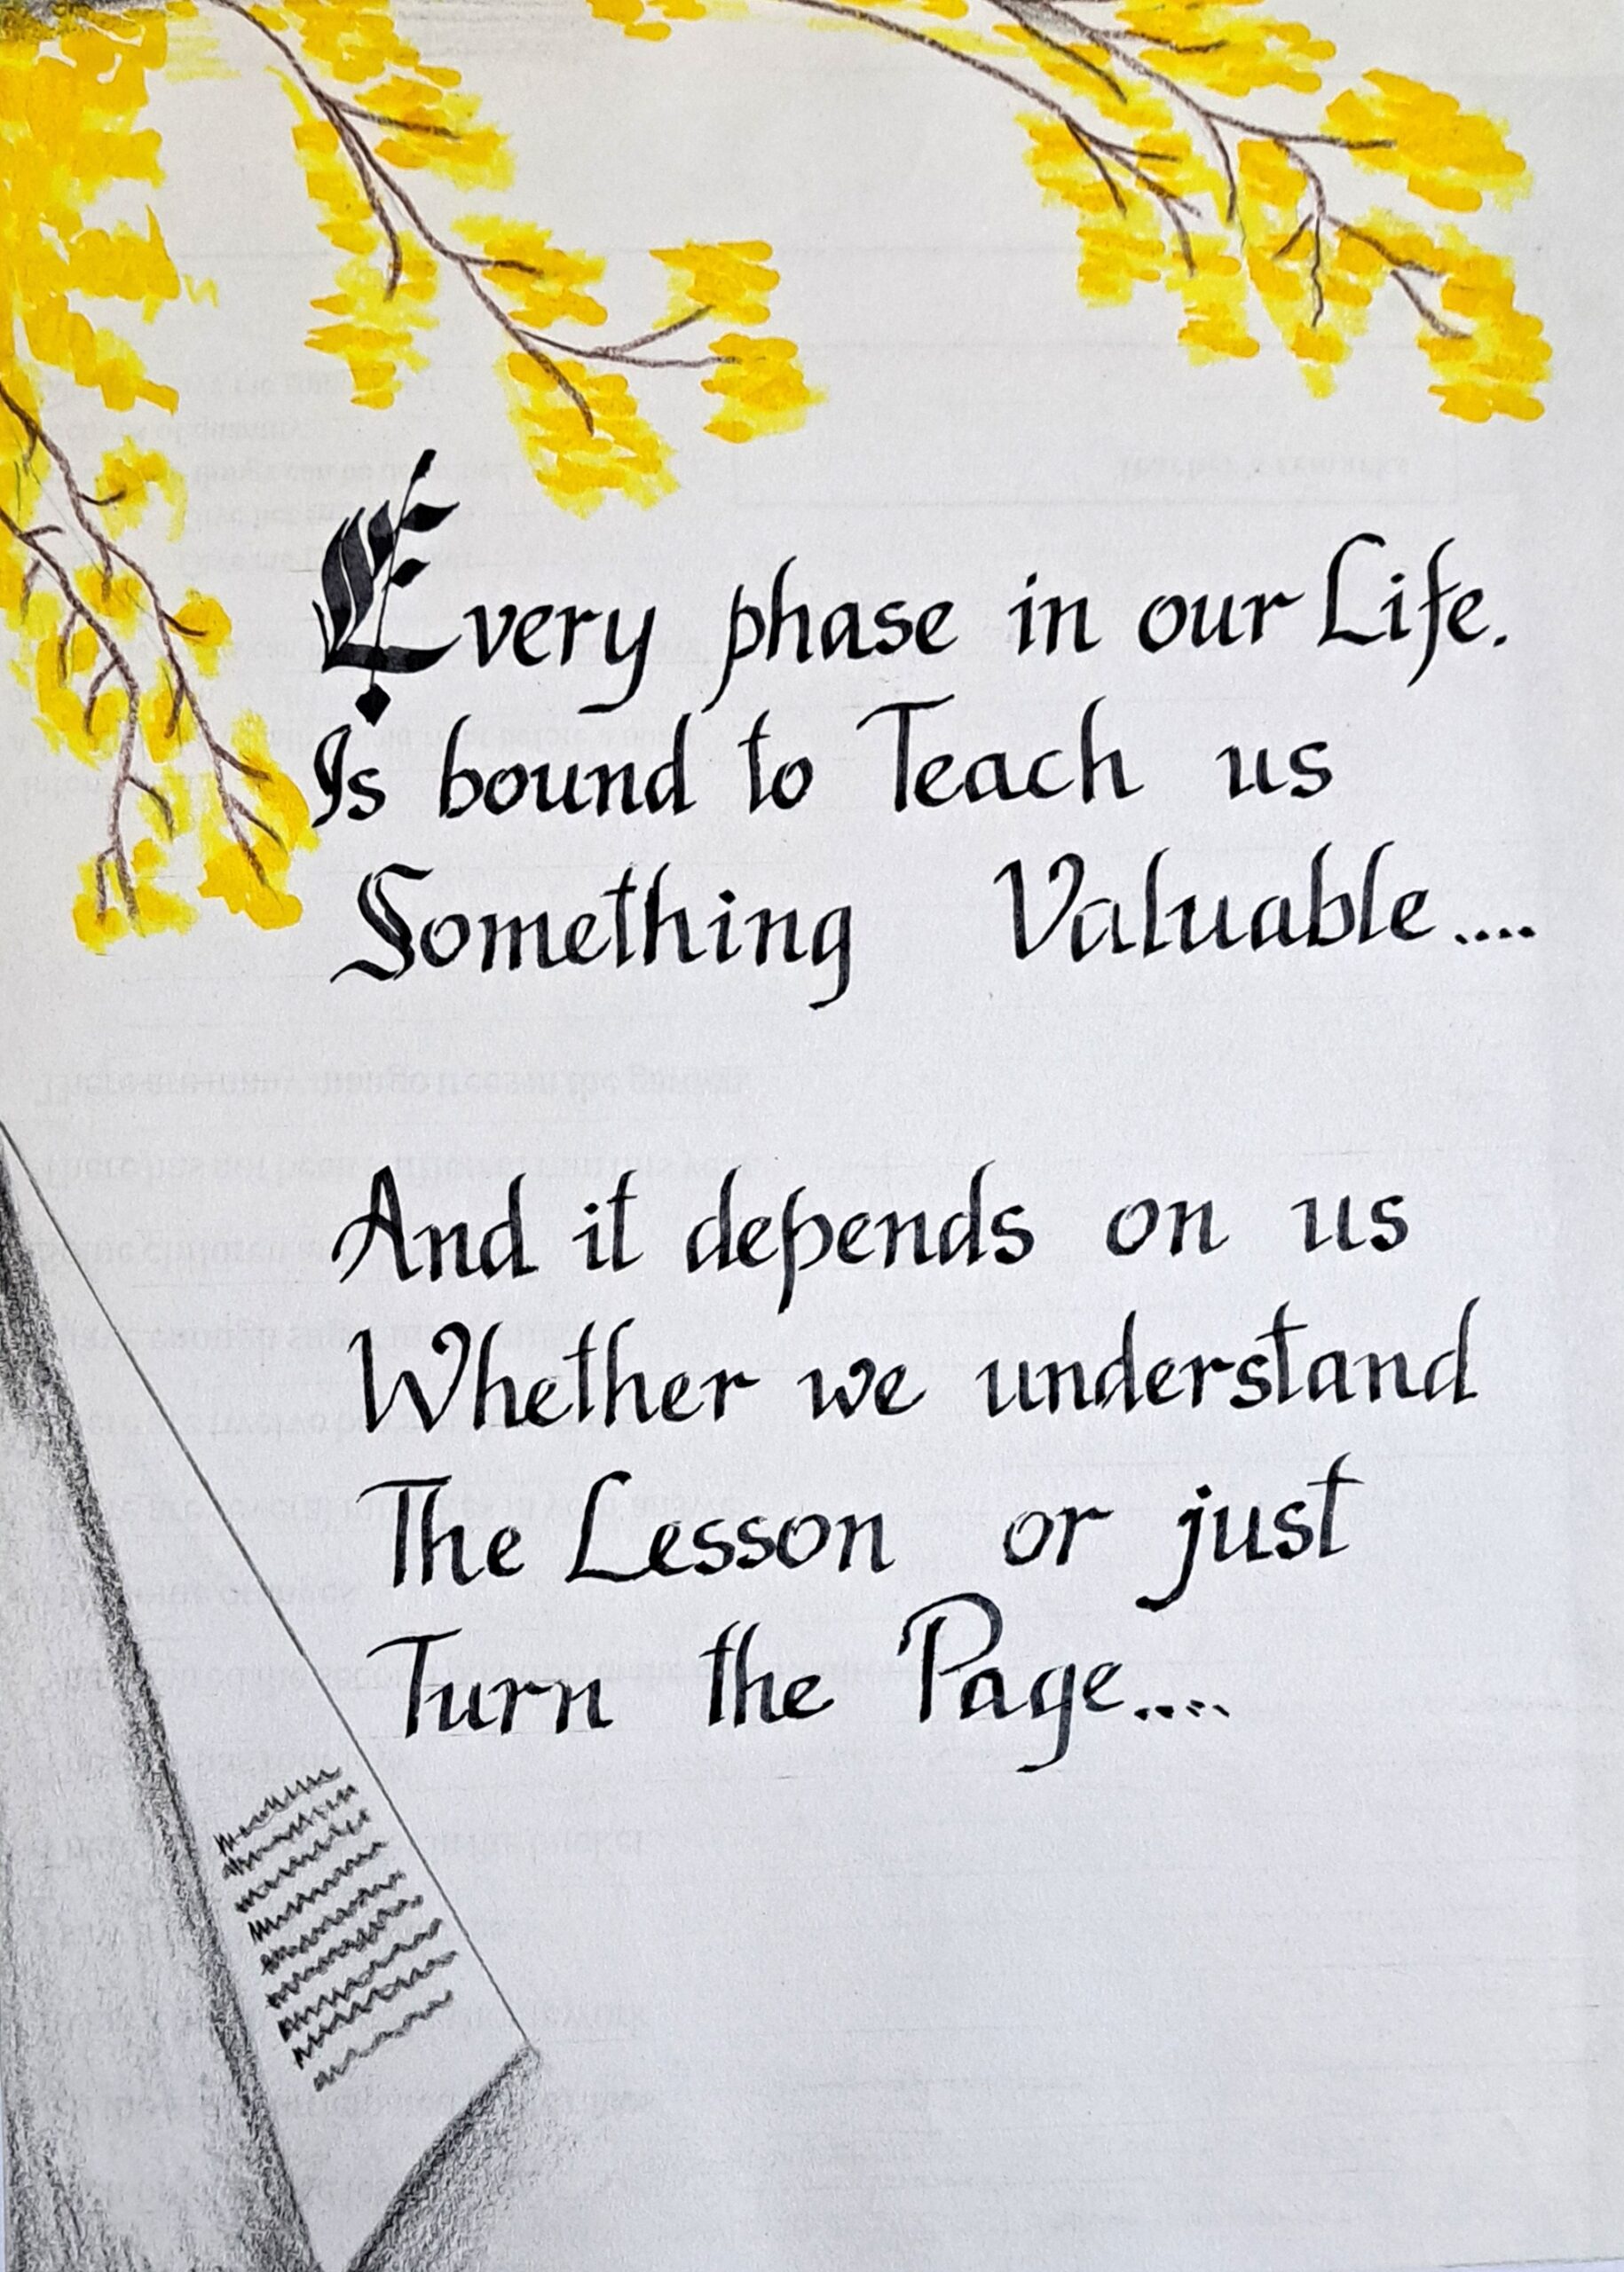 Every phase in our Life.
Is bound to Teach us
Something Valuable....
And it depends on us
Whether we understand
The Lesson or just
Turn the Page....